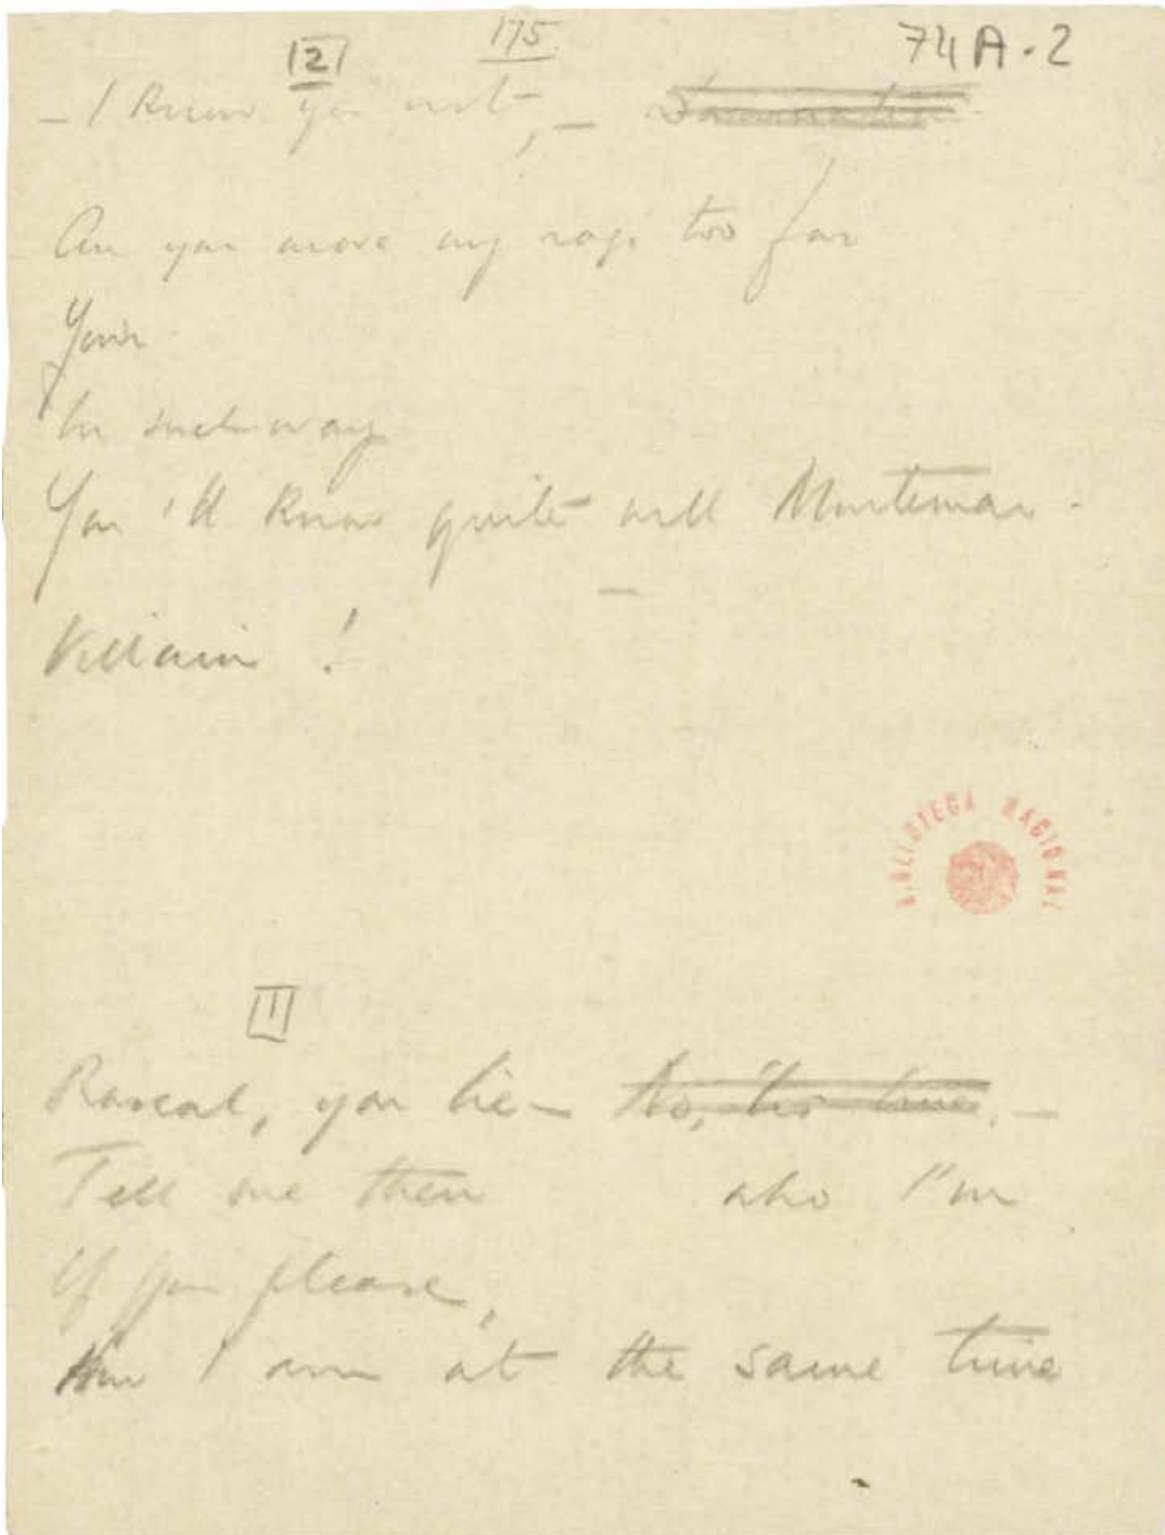 2 175 74A-2
– I know you not, –
you move my rage too far
Your
In such way
You'll know quite well Morteman.
—
Villain!
BIBLIOTECA NACIONAL
1
Rascal, you lie – No, 'tis true. –
Tell me then who I'm
If you please,
I am at the same time